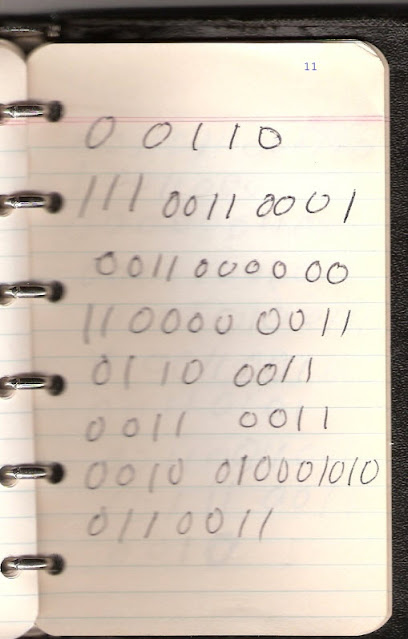 11
0 0110
111 0011 0001
0011 0000 00
110000 0011
0110 0011
0011 0011
0010 010001010
0110011